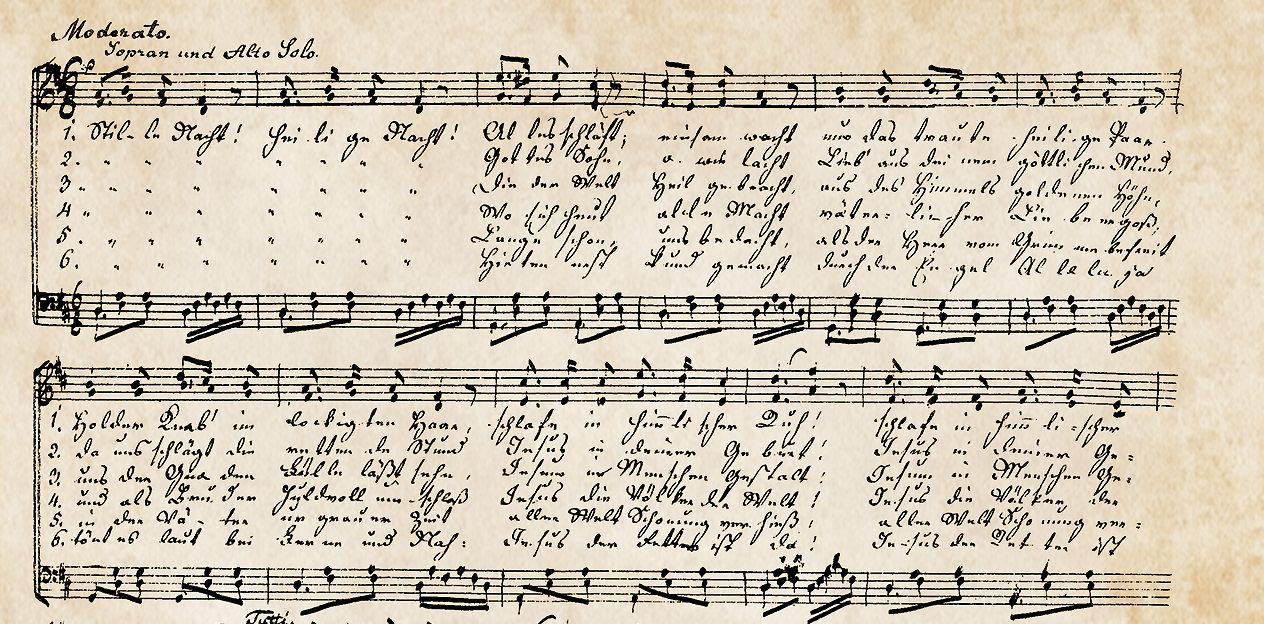 Moderato.
Sopran und Alto Solo.
1. Stil- le Nacht! Hei- li ge Nacht! Al les schläft; einsam wacht nur das traute heili-ge Paar.
2. " " " " " " " Got tes Sohn, o wie lacht Lieb' aus dei nem göttli chen Mund,
3 " " " " " " " " Die der Welt Heil ge bracht, aus des Himmels goldenen Höhn,
4 " " " " " " " Wo sich heut alle Macht väter- lic-her Lie be ergoß,
5. " " " " " " " Lange schon, uns bedacht, als der Herr vom Grimme befreit
6. " " " " " " " Hirten erst kund gemacht durch der En gel Al le lu ja
1. Holder Knab' im lockig-ten Haar, schlafe in himli scher Ruh! schlafe in himli-scher
2. da uns schlägt die retten de Stund Jesus in deiner Ge burt! Jesus in deiner Ge-
3. uns der Gna den Fülle läßt sehn, Jesum in Menschen Gestalt! Jesum in Menschen Ge-
4. und als Bru der Huldvoll um schloß Jesus die Völker der Welt! Jesus die Völker der
5. in der Vä- ter ur grauer Zeit aller Welt Schonung ver hieß! aller Welt Scho nung ver-
6. tönt es laut bei Ferne und Nah: Je sus der Retter ist da! Je-sus der Ret ter ist
Tutti